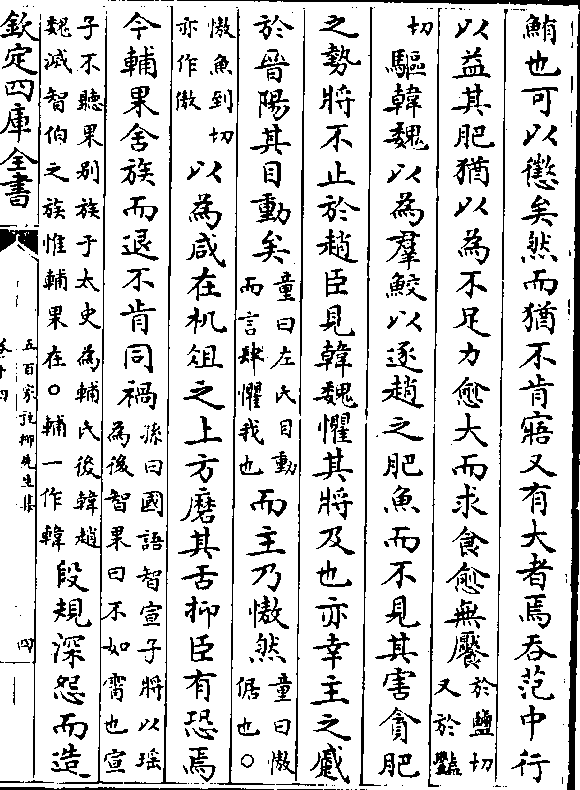 鮪也可以懲矣然而猶不肯寤又有大者焉吞范中行
以益其肥猶以為不足力愈大而求食愈無饜於鹽切又於豔
切驅韓魏以為羣鮫以逐趙之肥魚而不見其害貪肥
之勢將不止於趙臣見韓魏懼其將及也亦幸主之蹙
於晉陽其目動矣童曰左氏目動而言肆懼我也而主乃慠然童曰慠倨也○
慠魚到切亦作傲以為咸在机俎之上方磨其舌抑臣有恐焉
今輔果舍族而退不肯同禍孫曰國語智宣子將以瑶為後智果曰不如霄也宣
子不聽果别族于太史為輔氏後韓趙魏滅智伯之族惟輔果在○輔一作韓段規深怨而造
欽定四庫全書
五百家註柳先生集
卷十四
四